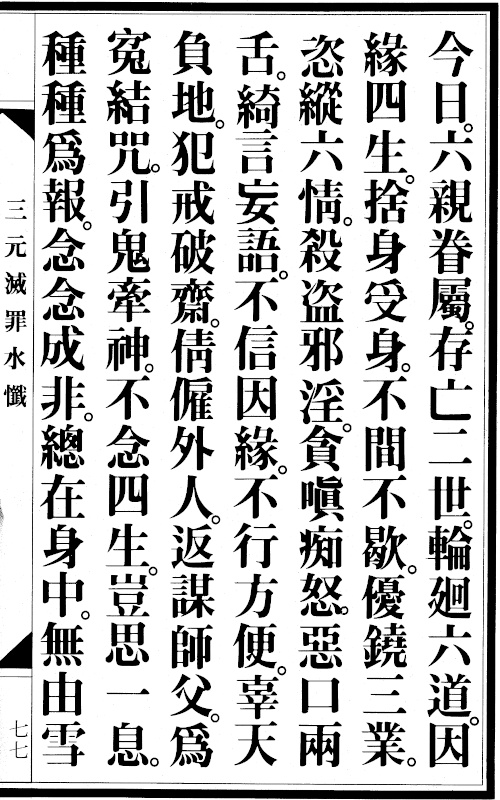 今日。六親眷屬。存亡二世。輪廻六道。因
緣四生。捨身受身。不間不歇。優鐃三業。
恣縱六情。殺盜邪淫。貪嗔痴怒。惡口兩
舌。綺言妄語。不信因緣。不行方便。辜天
負地。犯戒破齋。倩僱外人。返謀師父。爲
冤結咒。引鬼牽神。不念四生。豈思一息。
種種爲報。念念成非。總在身中。無由雪
三元滅罪水懺
七七